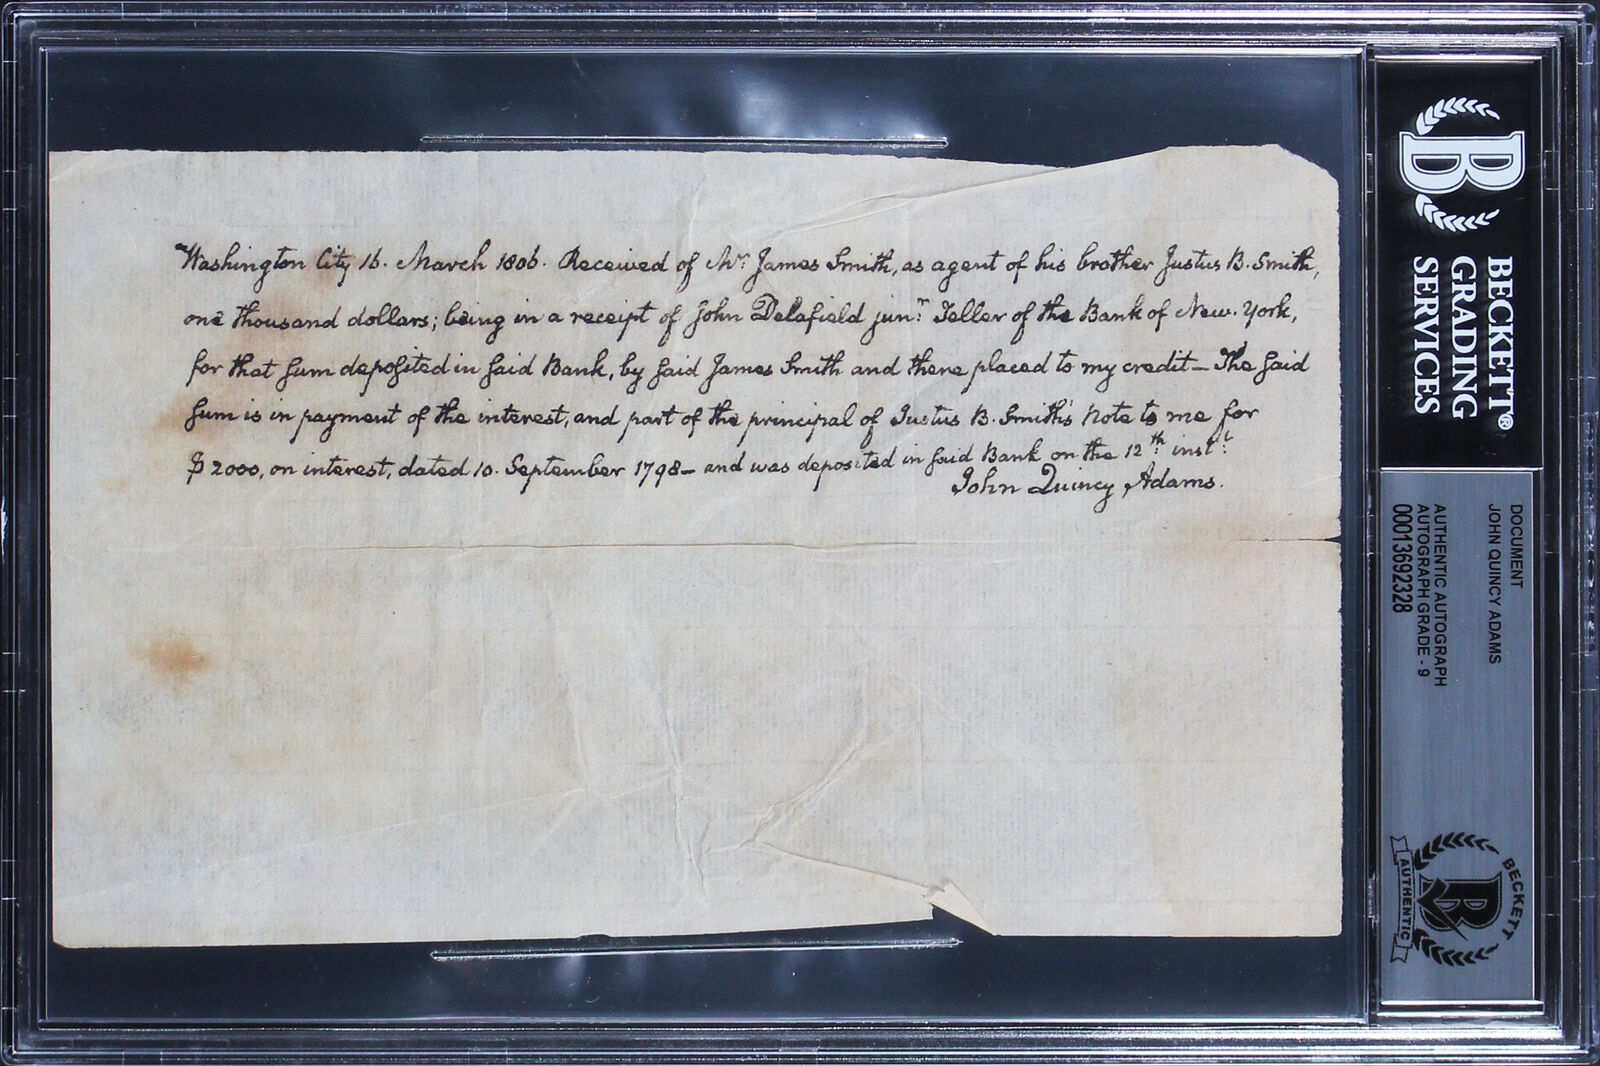 Washington City 16. March 1806. Received of Mr. James Smith, as agent of his brother Justus B. Smith,
one thousand dollars; being in a receipt of John Delafield junr. Teller of the Bank of New-York,
for that sum deposited in said Bank, by said James Smith and there placed to my credit — The said
sum is in payment of the interest, and part of the principal of Justus B. Smith's Note to me for
$2000, on interest, dated 10. September 1798 — and was deposited in said Bank on the 12th. instt.
John Quincy Adams.
BECKETT®
GRADING
SERVICES
DOCUMENT
JOHN QUINCY ADAMS
AUTHENTIC AUTOGRAPH
AUTOGRAPH GRADE - 9
00013692328
BECKETT
B
AUTHENTIC